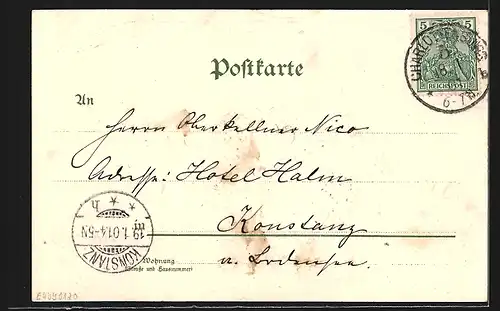 5 5
REICHSPOST
CHARLOTTENBURG
18.1
6-7N.
Postkarte
An
Herrn Oberkellner Nico
Adresse: Hotel Halm
Konstanz
a. Bodensee.
19.1.01.4-5N
KONSTANZ
Wohnung
(Straße und Hausnummer)